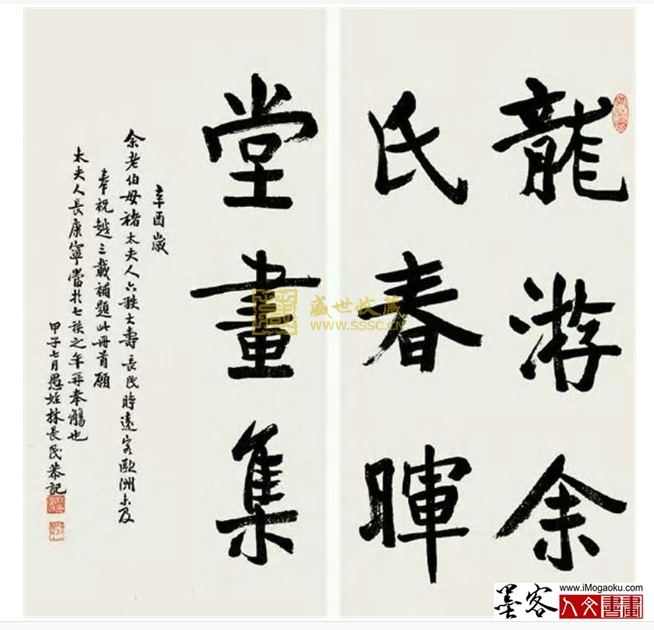 龍游余
氏春暉
堂畫集
辛酉歲
余老伯母褚太夫人六秩大壽長民時遠客歐洲未及
奉祝越三載補題此冊首願
太夫人長康寧當於七秩之年再奉觴也
甲子七月愚姪林長民恭記
盛世收藏
www.sssc.cn
墨客
www.iMogaoku.com
人文書畫